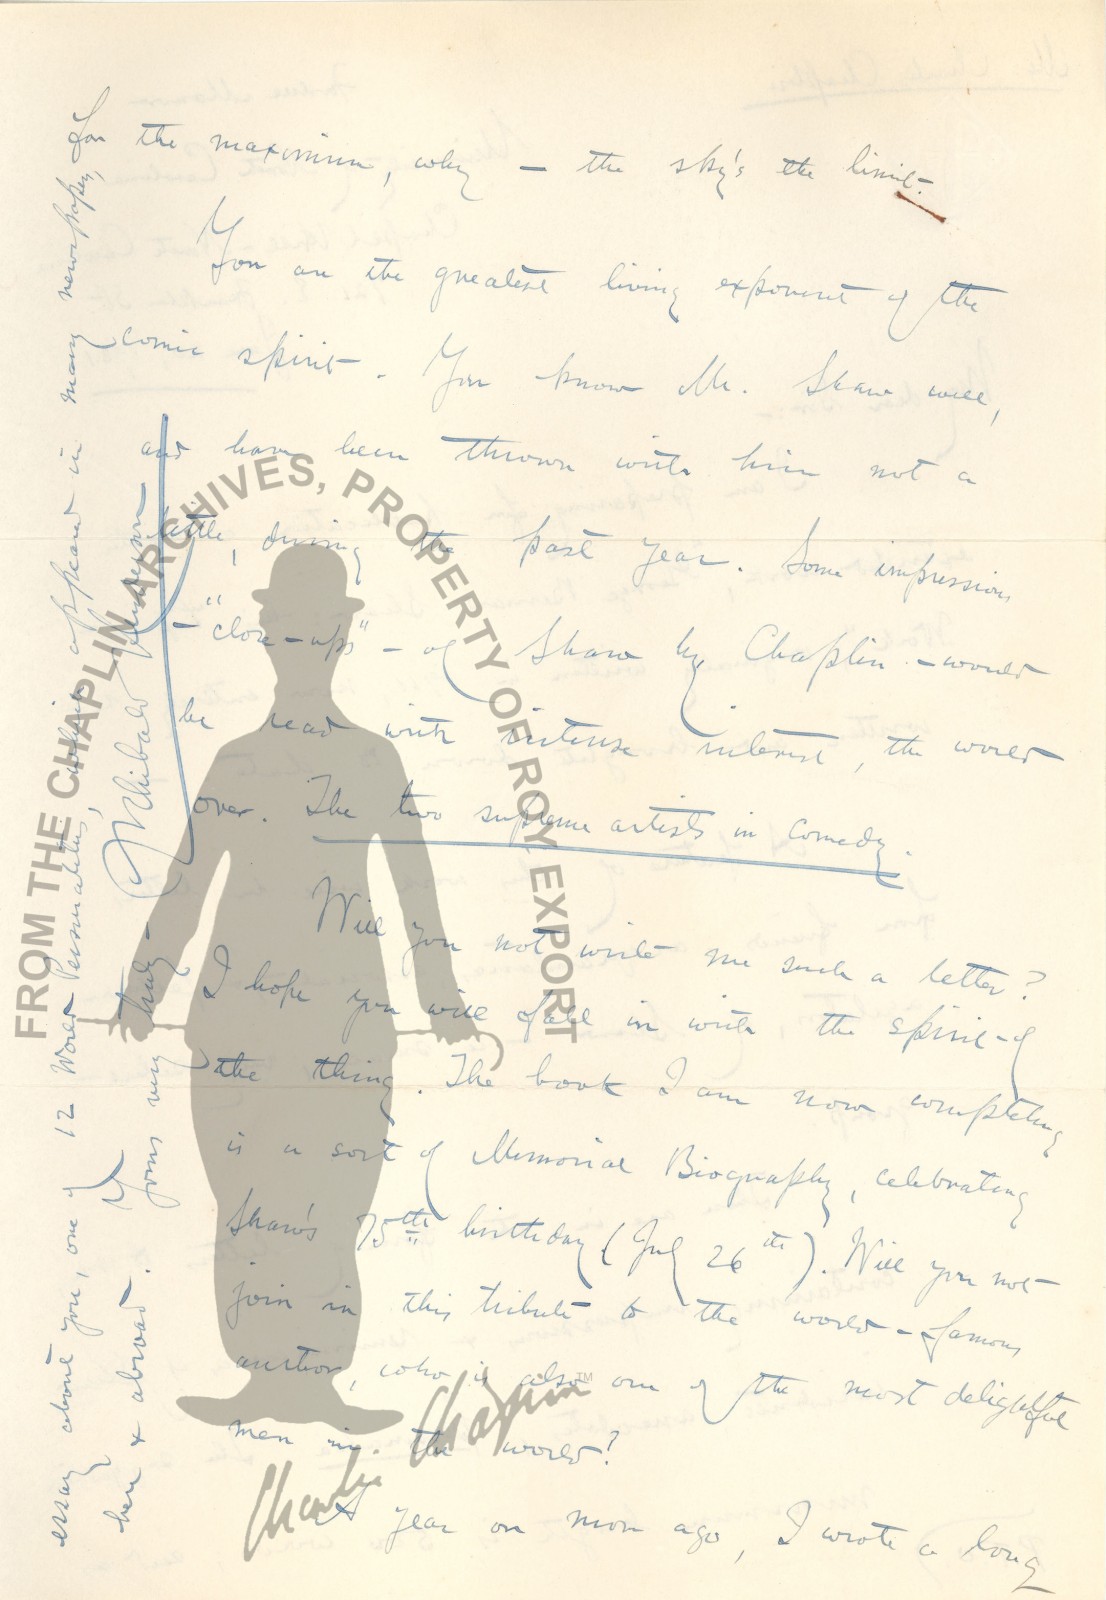 for the maximum, why – the sky's the limit.
You are the greatest living exponent of the
comic spirit. You know Mr. Shaw well,
and have been thrown with him not a
little, during the past year. Some impressions
– "close-ups" – of Shaw by Chaplin – would
be read with intense interest, the world
over. The two supreme artists in comedy.
Will you not write me such a letter?
I hope you will fall in with the spirit of
the thing. The book I am now completing
is a sort of Memorial Biography, celebrating
Shaw's 75th birthday (July 26th). Will you not
join in this tribute to the world-famous
author, who is also one of the most delightful
men in the world?
A year or more ago, I wrote a long
essay about you, one of 12 World Personalities, which appeared in many newspapers,
here & abroad.
Yours very truly –
Archibald Henderson
FROM THE CHAPLIN ARCHIVES, PROPERTY OF ROY EXPORT
Charlie Chaplin TM